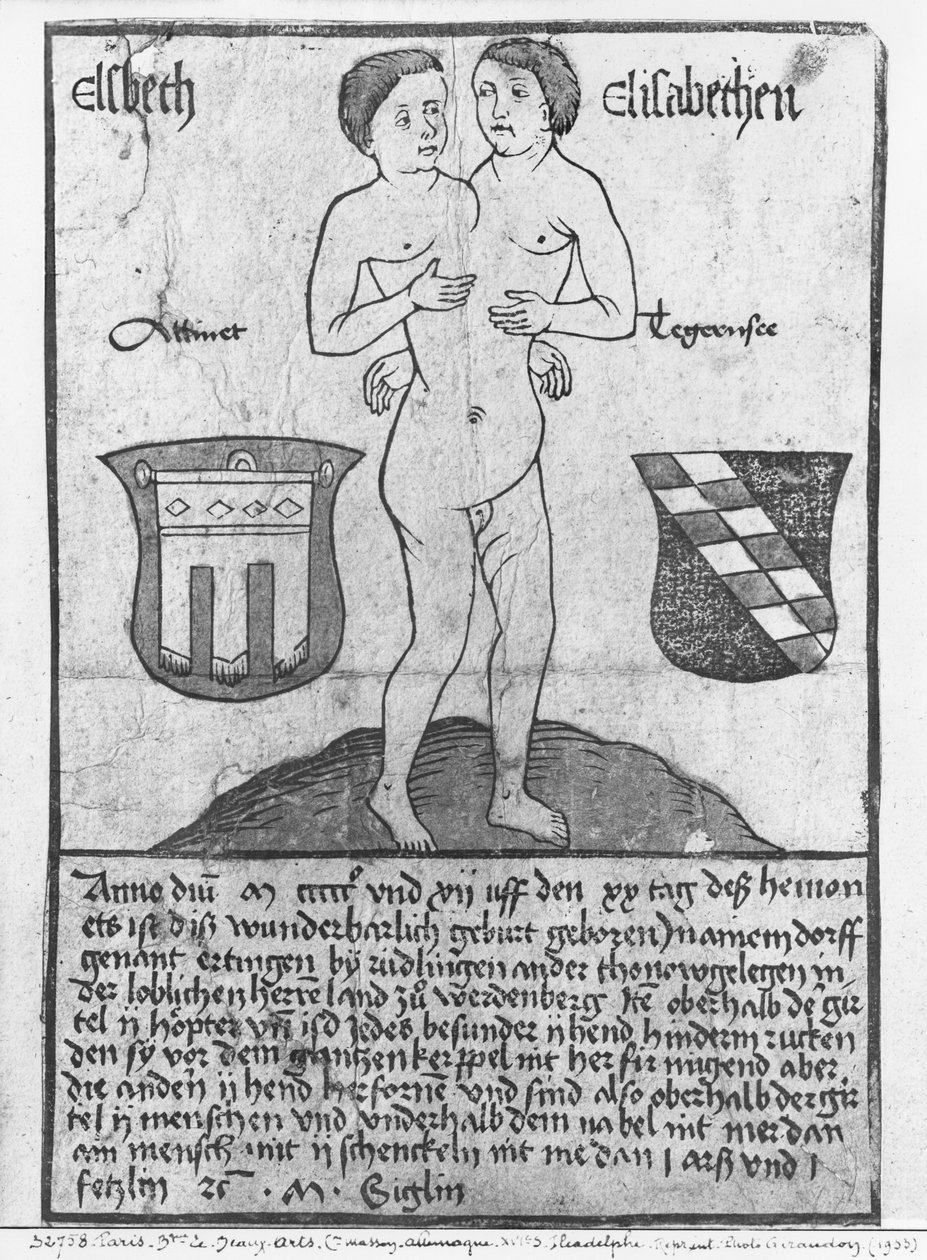 Elsbeth
Elisabethen
Tegernsee
Anno dni M ccccc vnd xij uff den xx tag deß hewmon
ets ist diß wunderbarlich geburt geboren In ainem dorff
genant ertingen by rüdlingen an der thonow gelegen in
der loblichen herren land zů werdenberg Itē oberhalb de gir
tel ij höpter vnd isd jedes besunder ij hend hinderm rucken
den sy vor dem gantzen kerppel nit her fir mugend aber
die anden ij hend herfornē vnd sind also oberhalb der gir
tel ij menschen vnd vnderhalb dem nabel nit mer dan
ain mensch mit ij schenckeln nit me dan I arß vnd I
fetzlin zc . M . Giglin
32758. Paris. Bque Ec. Beaux-Arts. Con Masson. Allemagne. XVIe S. Reprint. Photo Giraudon. (1933)